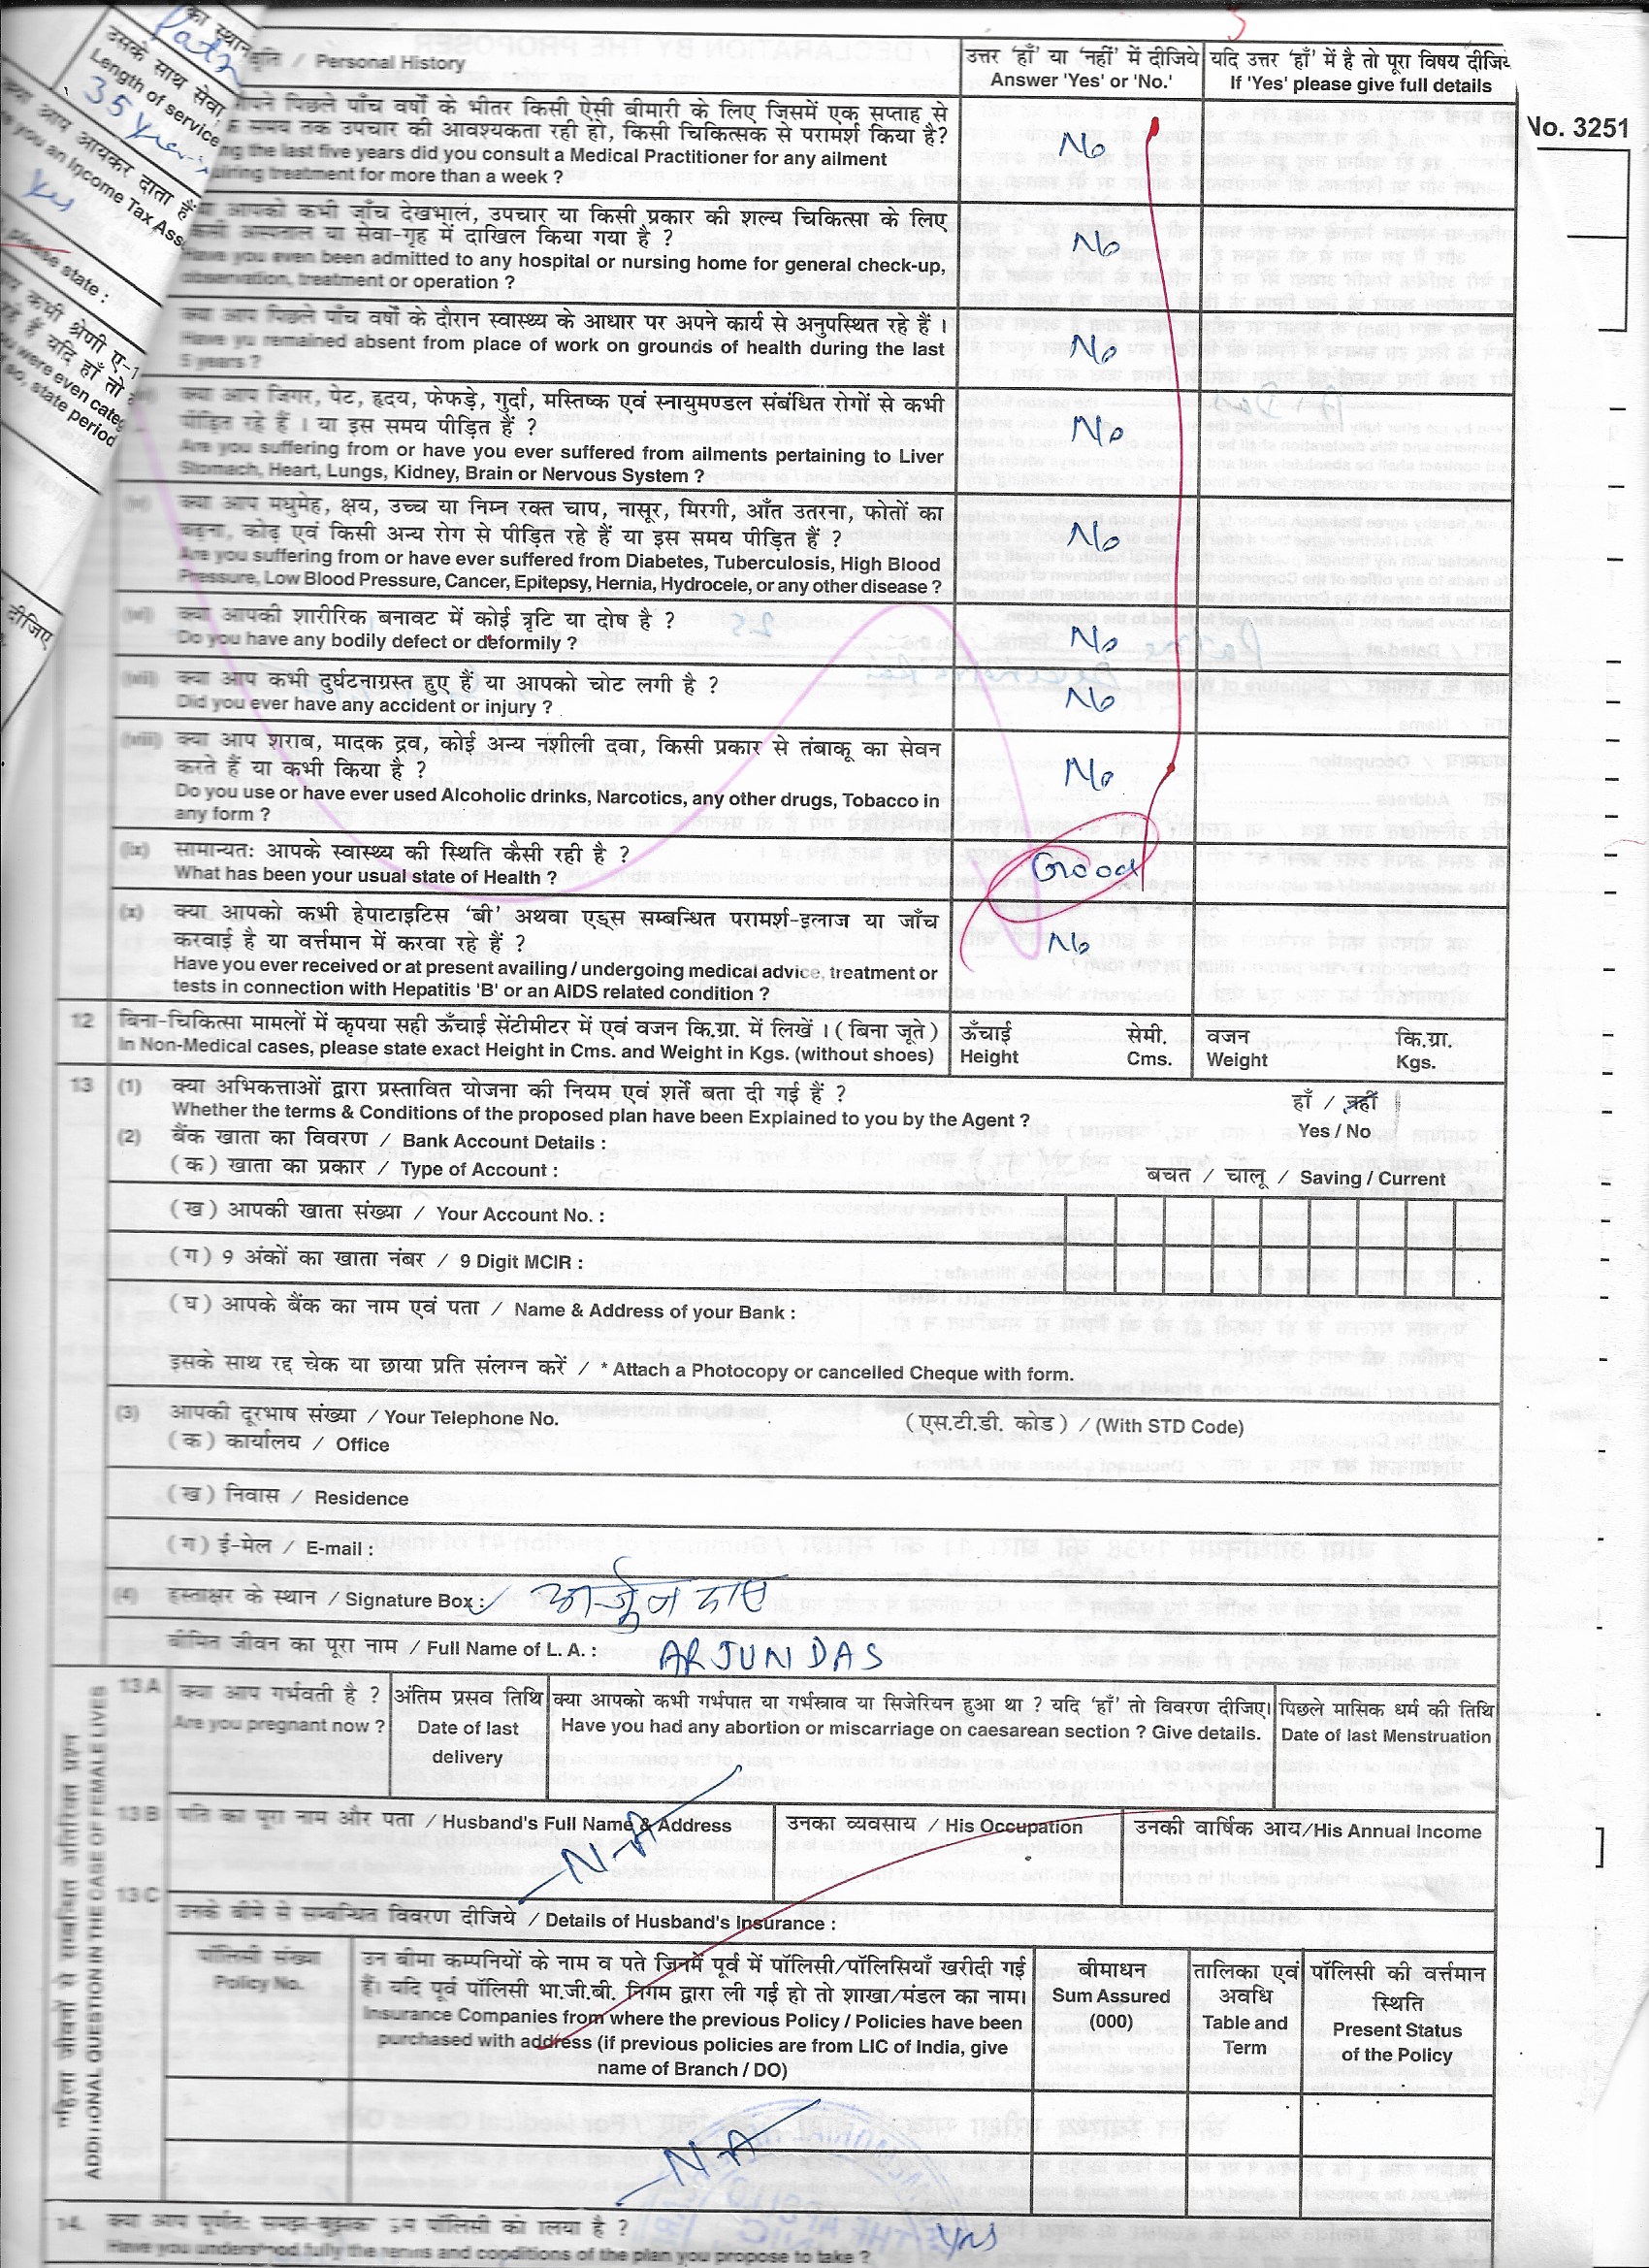 का स्थान
Patn
उसके साथ सेवा
Length of service
35 years
क्या आप आयकर दाता हैं
you an Income Tax Ass
Yes
please state :
कभी श्रेणी ए-1
रहे हैं यदि हाँ तो
were even categ
so, state period
दीजिए
No. 3251
/ Personal History
उत्तर 'हाँ' या 'नहीं' में दीजिये
Answer 'Yes' or 'No.'
यदि उत्तर 'हाँ' में है तो पूरा विषय दीजिये
If 'Yes' please give full details
पिछले पाँच वर्षों के भीतर किसी ऐसी बीमारी के लिए जिसमें एक सप्ताह से
समय तक उपचार की आवश्यकता रही हो, किसी चिकित्सक से परामर्श किया है?
ng the last five years did you consult a Medical Practitioner for any ailment
uiring treatment for more than a week ?
No
आपको कभी जाँच देखभाल, उपचार या किसी प्रकार की शल्य चिकित्सा के लिए
किसी अस्पताल या सेवा-गृह में दाखिल किया गया है ?
Have you even been admitted to any hospital or nursing home for general check-up,
observation, treatment or operation ?
No
क्या आप पिछले पाँच वर्षों के दौरान स्वास्थ्य के आधार पर अपने कार्य से अनुपस्थित रहे हैं ।
Have yu remained absent from place of work on grounds of health during the last
5 years ?
No
क्या आप जिगर, पेट, हृदय, फेफड़े, गुर्दा, मस्तिष्क एवं स्नायुमण्डल संबंधित रोगों से कभी
पीड़ित रहे हैं । या इस समय पीड़ित हैं ?
Are you suffering from or have you ever suffered from ailments pertaining to Liver
Stomach, Heart, Lungs, Kidney, Brain or Nervous System ?
No
क्या आप मधुमेह, क्षय, उच्च या निम्न रक्त चाप, नासूर, मिरगी, आँत उतरना, फोतों का
बढ़ना, कोढ़ एवं किसी अन्य रोग से पीड़ित रहे हैं या इस समय पीड़ित हैं ?
Are you suffering from or have ever suffered from Diabetes, Tuberculosis, High Blood
Pressure, Low Blood Pressure, Cancer, Epitepsy, Hernia, Hydrocele, or any other disease ?
No
(vi) क्या आपकी शारीरिक बनावट में कोई त्रृटि या दोष है ?
Do you have any bodily defect or deformily ?
No
(vii) क्या आप कभी दुर्घटनाग्रस्त हुए हैं या आपको चोट लगी है ?
Did you ever have any accident or injury ?
No
(viii) क्या आप शराब, मादक द्रव, कोई अन्य नशीली दवा, किसी प्रकार से तंबाकू का सेवन
करते हैं या कभी किया है ?
Do you use or have ever used Alcoholic drinks, Narcotics, any other drugs, Tobacco in
any form ?
No
(ix) सामान्यतः आपके स्वास्थ्य की स्थिति कैसी रही है ?
What has been your usual state of Health ?
Good
(x) क्या आपको कभी हेपाटाइटिस 'बी' अथवा एड्स सम्बन्धित परामर्श-इलाज या जाँच
करवाई है या वर्त्तमान में करवा रहे हैं ?
Have you ever received or at present availing / undergoing medical advice, treatment or
tests in connection with Hepatitis 'B' or an AIDS related condition ?
No
12 बिना-चिकित्सा मामलों में कृपया सही ऊँचाई सेंटीमीटर में एवं वजन कि.ग्रा. में लिखें । ( बिना जूते )
In Non-Medical cases, please state exact Height in Cms. and Weight in Kgs. (without shoes)
ऊँचाई सेमी. वजन कि.ग्रा.
Height Cms. Weight Kgs.
13 (1) क्या अभिकर्त्ताओं द्वारा प्रस्तावित योजना की नियम एवं शर्तें बता दी गई हैं ?
Whether the terms & Conditions of the proposed plan have been Explained to you by the Agent ?
हाँ / नहीं
Yes / No
(2) बैंक खाता का विवरण / Bank Account Details :
(क) खाता का प्रकार / Type of Account :
बचत / चालू / Saving / Current
(ख) आपकी खाता संख्या / Your Account No. :
(ग) 9 अंकों का खाता नंबर / 9 Digit MCIR :
(घ) आपके बैंक का नाम एवं पता / Name & Address of your Bank :
इसके साथ रद्द चेक या छाया प्रति संलग्न करें / * Attach a Photocopy or cancelled Cheque with form.
(3) आपकी दूरभाष संख्या / Your Telephone No.
(एस.टी.डी. कोड) / (With STD Code)
(क) कार्यालय / Office
(ख) निवास / Residence
(ग) ई-मेल / E-mail :
(4) हस्ताक्षर के स्थान / Signature Box :
अर्जुन दास
बीमित जीवन का पूरा नाम / Full Name of L. A. :
ARJUN DAS
महिला जीवनों से सम्बन्धित अतिरिक्त प्रश्न
ADDITIONAL QUESTION IN THE CASE OF FEMALE LIVES
13A क्या आप गर्भवती है ?
Are you pregnant now ?
अंतिम प्रसव तिथि
Date of last
delivery
क्या आपको कभी गर्भपात या गर्भस्त्राव या सिजेरियन हुआ था ? यदि 'हाँ' तो विवरण दीजिए।
Have you had any abortion or miscarriage on caesarean section ? Give details.
पिछले मासिक धर्म की तिथि
Date of last Menstruation
13B पति का पूरा नाम और पता / Husband's Full Name & Address
उनका व्यवसाय / His Occupation
उनकी वार्षिक आय/His Annual Income
N-A
13C
उनके बीमे से सम्बन्धित विवरण दीजिये / Details of Husband's Insurance :
पॉलिसी संख्या
Policy No.
उन बीमा कम्पनियों के नाम व पते जिनमें पूर्व में पॉलिसी/पॉलिसियाँ खरीदी गई
हैं। यदि पूर्व पॉलिसी भा.जी.बी. निगम द्वारा ली गई हो तो शाखा/मंडल का नाम।
Insurance Companies from where the previous Policy / Policies have been
purchased with address (if previous policies are from LIC of India, give
name of Branch / DO)
बीमाधन
Sum Assured
(000)
तालिका एवं
अवधि
Table and
Term
पॉलिसी की वर्त्तमान
स्थिति
Present Status
of the Policy
N-A
14. क्या आप पूर्णतः समझ-बूझकर इस पॉलिसी को लिया है ?
Have you understood fully the terms and conditions of the plan you propose to take ?
Yes